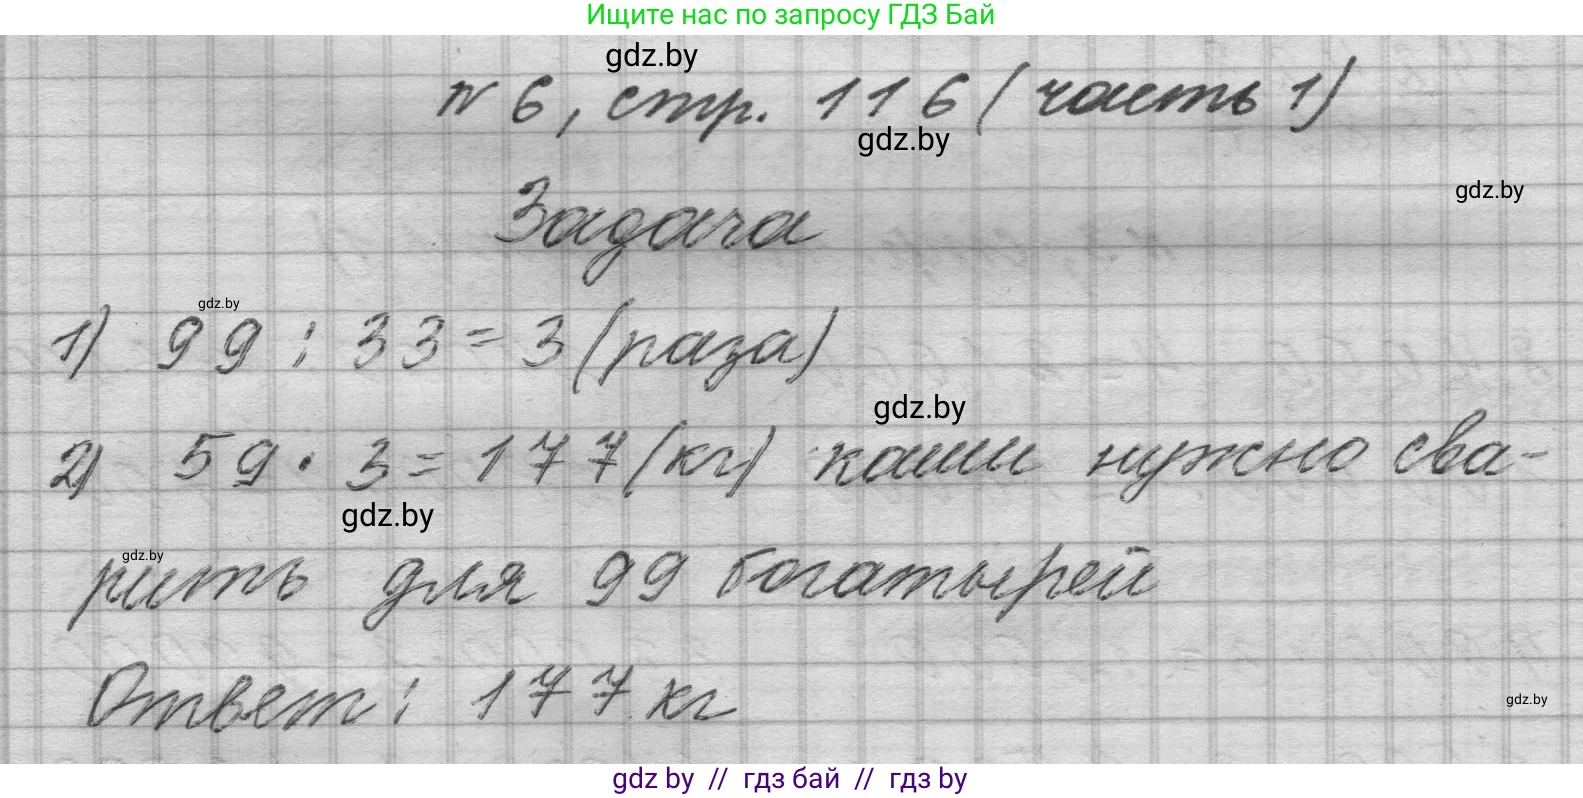 Ищите нас по запросу ГДЗ Бай
gdz.by
№ 6, стр. 116 (часть 1)
gdz.by
gdz.by
Задача
gdz.by
1) 99 : 33 = 3 (раза)
gdz.by
2) 59 · 3 = 177 (кг) каши нужно сва-
gdz.by
gdz.by
рить для 99 богатырей
Ответ: 177 кг
gdz.by
gdz by // гдз бай // гдз by